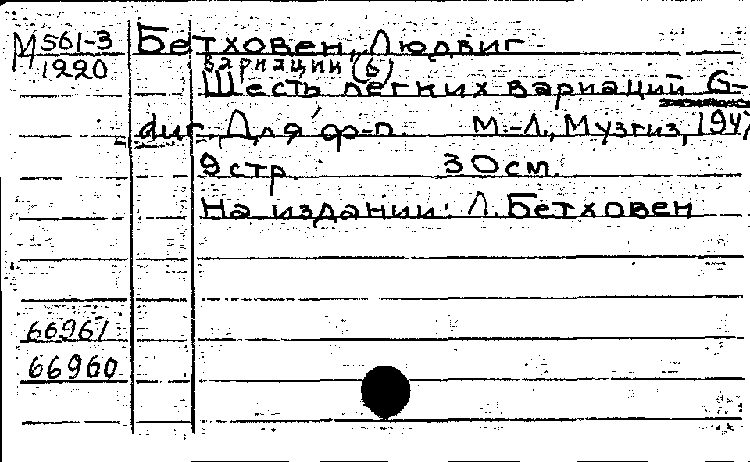 М 561-3 Бетховен, Людвиг
1220
Вариации (6)
Шесть легких вариаций G-
dur. Для ф-п. М.-Л., Музгиз, 1947
9 стр. 30 см.
На издании: Л. Бетховен
66961
66960